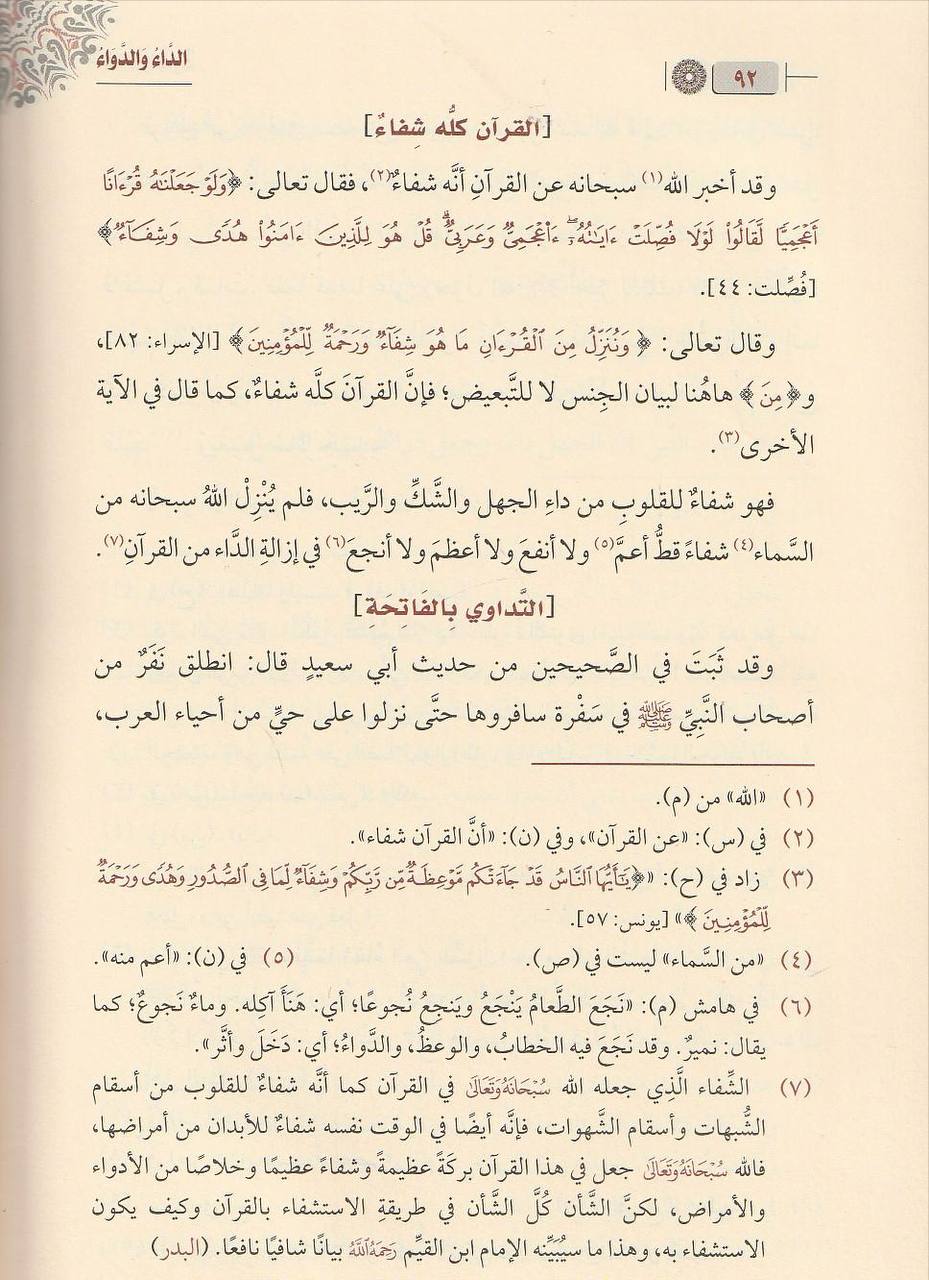 الدَّاءُ وَالدَّوَاءُ
٩٢
[القرآن كلُّه شِفاءٌ]
وقد أخبر الله(١) سبحانه عن القرآنِ أنَّه شفاءٌ(٢)، فقال تعالى: ﴿وَلَوْ جَعَلْنَٰهُ قُرْءَانًا
أَعْجَمِيًّا لَّقَالُوا۟ لَوْلَا فُصِّلَتْ ءَايَٰتُهُۥٓ ۖ ءَا۬عْجَمِىٌّ وَعَرَبِىٌّ ۗ قُلْ هُوَ لِلَّذِينَ ءَامَنُوا۟ هُدًى وَشِفَآءٌ﴾
[فُصِّلت: ٤٤].
وقال تعالى: ﴿وَنُنَزِّلُ مِنَ ٱلْقُرْءَانِ مَا هُوَ شِفَآءٌ وَرَحْمَةٌ لِّلْمُؤْمِنِينَ﴾ [الإسراء: ٨٢]،
و﴿مِنَ﴾ هاهُنا لبيان الجِنس لا للتَّبعيض؛ فإنَّ القرآنَ كلَّه شفاءٌ، كما قال في الآية
الأخرى(٣).
فهو شفاءٌ للقلوبِ من داءِ الجهل والشَّكِّ والرَّيب، فلم يُنْزِلْ اللهُ سبحانه من
السَّماء(٤) شفاءً قطُّ أعمَّ(٥) ولا أنفعَ ولا أعظمَ ولا أنجعَ(٦) في إزالةِ الدَّاء من القرآنِ(٧).
[التَّداوي بِالفَاتِحَةِ]
وقد ثَبَتَ في الصَّحيحين من حديث أبي سعيدٍ قال: انطلق نَفَرٌ من
أصحاب النَّبيِّ ﷺ في سَفْرة سافروها حتَّى نزلوا على حيٍّ من أحياء العرب،
(١) «الله» من (م).
(٢) في (س): «عن القرآن»، وفي (ن): «أنَّ القرآن شفاء».
(٣) زاد في (ح): «﴿يَٰٓأَيُّهَا ٱلنَّاسُ قَدْ جَآءَتْكُم مَّوْعِظَةٌ مِّن رَّبِّكُمْ وَشِفَآءٌ لِّمَا فِى ٱلصُّدُورِ وَهُدًى وَرَحْمَةٌ
لِّلْمُؤْمِنِينَ﴾» [يونس: ٥٧].
(٤) «من السَّماء» ليست في (ص). (٥) في (ن): «أعم منه».
(٦) في هامش (م): «نَجَعَ الطَّعامُ يَنْجَعُ ويَنجِعُ نُجوعًا؛ أي: هَنَأَ آكِله. وماءٌ نَجوعٌ؛ كما
يقال: نميرٌ. وقد نَجَعَ فيه الخطابُ، والوعظُ، والدَّواءُ؛ أي: دَخَلَ وأثَّر».
(٧) الشِّفاء الَّذِي جعله الله سُبْحَانَهُ وَتَعَالَى في القرآن كما أنَّه شفاءٌ للقلوب من أسقام
الشُّبهات وأسقام الشَّهوات، فإنَّه أيضًا في الوقت نفسه شفاءٌ للأبدان من أمراضها،
فالله سُبْحَانَهُ وَتَعَالَى جعل في هذا القرآن بركَةً عظيمةً وشفاءً عظيمًا وخلاصًا من الأدواء
والأمراض، لكنَّ الشَّأن كُلَّ الشَّأن في طريقةِ الاستشفاء بالقرآن وكيف يكون
الاستشفاء به، وهذا ما سيُبَيِّنه الإمام ابن القيِّم رَحِمَهُ اللَّهُ بيانًا شافيًا نافعًا. (البدر)